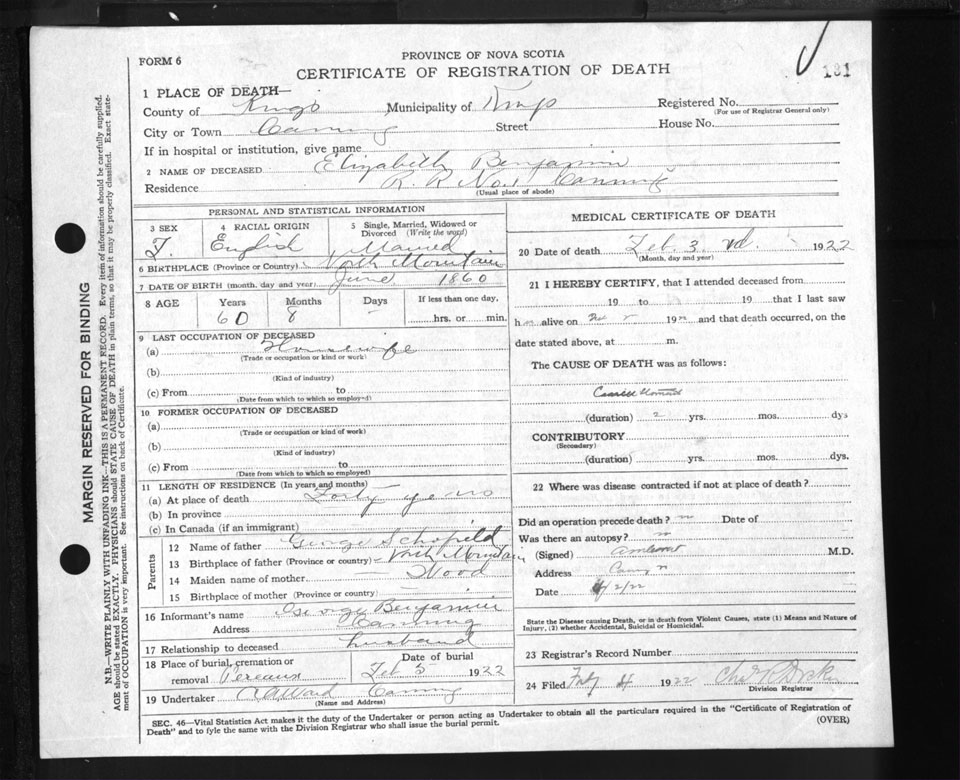 PROVINCE OF NOVA SCOTIA
FORM 6
CERTIFICATE OF REGISTRATION OF DEATH
131
1 PLACE OF DEATH—
County of Kings Municipality of Kings Registered No.
(For use of Registrar General only)
City or Town Canning Street House No.
If in hospital or institution, give name
2 NAME OF DECEASED Elizabeth Benjamin
Residence R. R. No. 1 Canning
(Usual place of abode)
MARGIN RESERVED FOR BINDING
N.B.—WRITE PLAINLY WITH UNFADING INK—THIS IS A PERMANENT RECORD. Every item of information should be carefully supplied.
AGE should be stated EXACTLY. PHYSICIANS should STATE CAUSE OF DEATH in plain terms, so that it may be properly classified. Exact state-
ment of OCCUPATION is very important. See instructions on back of Certificate.
PERSONAL AND STATISTICAL INFORMATION
3 SEX 4 RACIAL ORIGIN 5 Single, Married, Widowed or
Divorced (Write the word)
F. English Married
6 BIRTHPLACE (Province or Country) North Mountain
7 DATE OF BIRTH (month, day and year) June 1860
8 AGE Years Months Days If less than one day,
60 8 hrs. or min.
9 LAST OCCUPATION OF DECEASED
(a) Housewife
(Trade or occupation or kind or work)
(b)
(Kind of industry)
(c) From to
(Date from which to which so employed)
10 FORMER OCCUPATION OF DECEASED
(a)
(Trade or occupation or kind of work)
(b)
(Kind of industry)
(c) From to
(Date from which to which so employed)
11 LENGTH OF RESIDENCE (In years and months)
(a) At place of death Forty years
(b) In province
(c) In Canada (if an immigrant)
Parents
12 Name of father George Schofield
13 Birthplace of father (Province or country) North Mountain
14 Maiden name of mother Wood
15 Birthplace of mother (Province or country)
16 Informant's name George Benjamin
Address Canning
17 Relationship to deceased husband
18 Place of burial, cremation or Date of burial
removal Pereaux Feb 5 1922
19 Undertaker Canning
(Name and Address)
MEDICAL CERTIFICATE OF DEATH
20 Date of death Feb. 3 rd. 1922
(Month, day and year)
21 I HEREBY CERTIFY, that I attended deceased from
19 to 19 that I last saw
h alive on 19 and that death occurred, on the
date stated above, at m.
The CAUSE OF DEATH was as follows:
(duration) 2 yrs. mos. dys
CONTRIBUTORY
(Secondary)
(duration) yrs. mos. dys.
22 Where was disease contracted if not at place of death?
Did an operation precede death? Date of
Was there an autopsy?
(Signed) M.D.
Address
Date 2/22
State the Disease causing Death, or in death from Violent Causes, state (1) Means and Nature of
Injury, (2) whether Accidental, Suicidal or Homicidal.
23 Registrar's Record Number
24 Filed 4 1922
Division Registrar
SEC. 46—Vital Statistics Act makes it the duty of the Undertaker or person acting as Undertaker to obtain all the particulars required in the "Certificate of Registration of
Death" and to fyle the same with the Division Registrar who shall issue the burial permit.
(OVER)